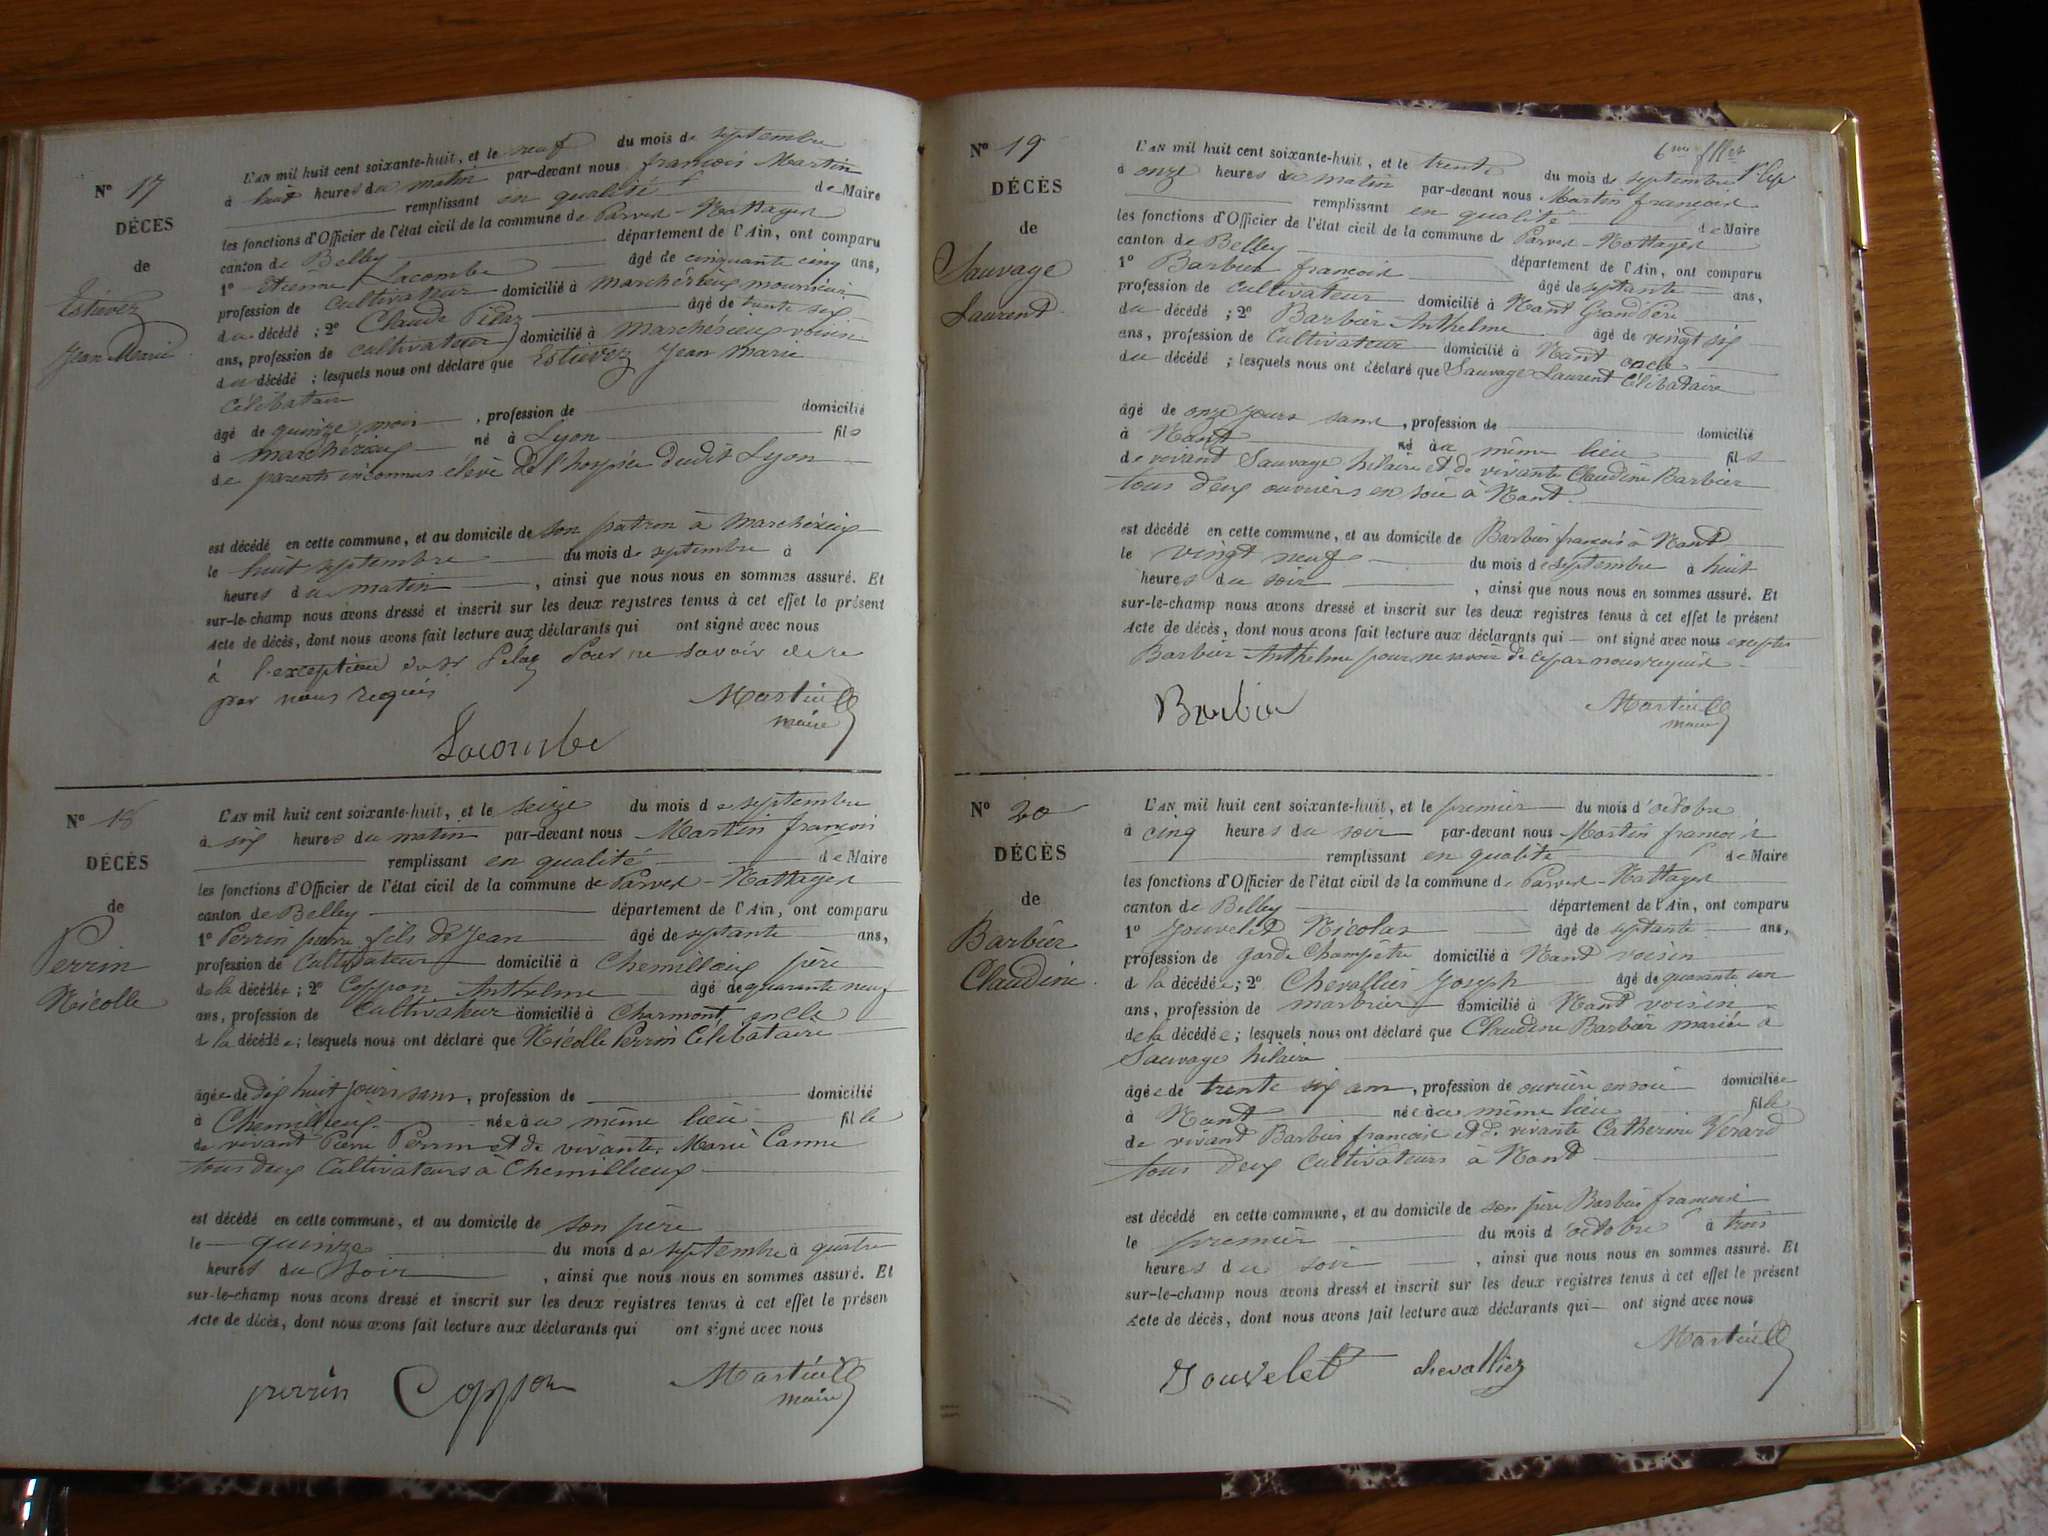 N° 17
DÉCÈS
de
Estievez
Jean Marie
L'AN mil huit cent soixante-huit, et le neuf du mois de septembre
à huit heures du matin par-devant nous françois Martin
remplissant en qualité de Maire
les fonctions d'Officier de l'état civil de la commune de Parves-Nattages
canton de Belley département de l'Ain, ont comparu
1° Etienne Lacombe âgé de cinquante cinq ans,
profession de cultivateur domicilié à marchérieux nourricier
du décédé ; 2° Claude Pélaz âgé de trente six
ans, profession de cultivateur domicilié à marchérieux voisin
du décédé ; lesquels nous ont déclaré que Estievez Jean marie
Célibataire
âgé de quinze mois , profession de domicilié
à marchérieux né à Lyon fils
de parents inconnus élève de l'hospice dudit Lyon
est décédé en cette commune, et au domicile de son patron à marchérieux
le huit septembre du mois de septembre à
heures du matin , ainsi que nous nous en sommes assuré. Et
sur-le-champ nous avons dressé et inscrit sur les deux registres tenus à cet effet le présent
Acte de décès, dont nous avons fait lecture aux déclarants qui ont signé avec nous
à l'exception du Sr Pelaz Pour ne savoir de ce
par nous requis
Martin
maire
Lacombe
N° 18
DÉCÈS
de
Perrin
Nicolle
L'AN mil huit cent soixante-huit, et le seize du mois de septembre
à six heures du matin par-devant nous Martin françois
remplissant en qualité de Maire
les fonctions d'Officier de l'état civil de la commune de Parves-Nattages
canton de Belley département de l'Ain, ont comparu
1° Perrin pierre fils de Jean âgé de septante ans,
profession de Cultivateur domicilié à Chemillieux père
de la décédée ; 2° Coppon Anthelme âgé de quarante neuf
ans, profession de Cultivateur domicilié à Charmont oncle
de la décédée ; lesquels nous ont déclaré que Nicolle Perrin Célibataire
âgée de dix huit jours sans , profession de domicilié
à Chemillieux née au même lieu fille
de vivant Pierre Perrin et de vivante Marie Canne
tous deux Cultivateurs à Chemillieux
est décédé en cette commune, et au domicile de son père
le quinze du mois de septembre à quatre
heures du Soir , ainsi que nous nous en sommes assuré. Et
sur-le-champ nous avons dressé et inscrit sur les deux registres tenus à cet effet le présen
Acte de décès, dont nous avons fait lecture aux déclarants qui ont signé avec nous
perrin Coppon Martin
maire
6me
N° 19
DÉCÈS
de
Sauvage
Laurent
L'AN mil huit cent soixante-huit, et le trente du mois de septembre
à onze heures du matin par-devant nous Martin françois
remplissant en qualité de Maire
les fonctions d'Officier de l'état civil de la commune de Parves-Nattages
canton de Belley département de l'Ain, ont comparu
1° Barbier françois âgé de septante ans,
profession de Cultivateur domicilié à Nant Grand Père
du décédé ; 2° Barbier Anthelme âgé de vingt six
ans, profession de Cultivateur domicilié à Nant oncle
du décédé ; lesquels nous ont déclaré que Sauvage Laurent Célibataire
âgé de onze jours sans , profession de domicilié
à Nant né au même lieu fils
de vivant Sauvage hilaire et de vivante Claudine Barbier
tous deux ouvriers en soie à Nant
est décédé en cette commune, et au domicile de Barbier françois à Nant
le vingt neuf du mois de septembre à huit
heures du soir , ainsi que nous nous en sommes assuré. Et
sur-le-champ nous avons dressé et inscrit sur les deux registres tenus à cet effet le présent
Acte de décès, dont nous avons fait lecture aux déclarants qui ont signé avec nous exceptés
Barbier Anthelme pour ne savoir de ce par nous requis
Barbier Martin
maire
N° 20
DÉCÈS
de
Barbier
Claudine
L'AN mil huit cent soixante-huit, et le premier du mois d'octobre
à cinq heures du soir par-devant nous Martin françois
remplissant en qualité de Maire
les fonctions d'Officier de l'état civil de la commune de Parves-Nattages
canton de Belley département de l'Ain, ont comparu
1° Jouvelet Nicolas âgé de septante ans,
profession de garde Champêtre domicilié à Nant voisin
de la décédée ; 2° Chevallier Joseph âgé de quarante un
ans, profession de marbrier domicilié à Nant voisin
de la décédée ; lesquels nous ont déclaré que Claudine Barbier mariée à
Sauvage hilaire
âgée de trente six ans , profession de ouvrière en soie domiciliée
à Nant née au même lieu fille
de vivant Barbier françois et de vivante Catherine Verard
tous deux cultivateurs à Nant
est décédé en cette commune, et au domicile de son père Barbier françois
le premier du mois d'octobre à trois
heures du soir , ainsi que nous nous en sommes assuré. Et
sur-le-champ nous avons dressé et inscrit sur les deux registres tenus à cet effet le présent
Acte de décès, dont nous avons fait lecture aux déclarants qui ont signé avec nous
Jouvelet chevallier Martin